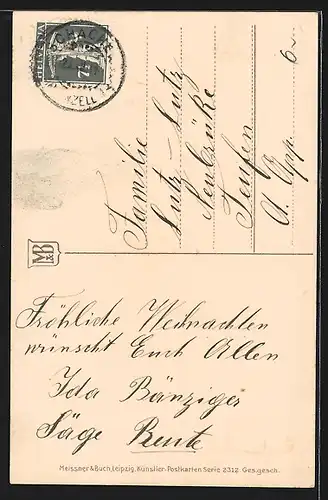 HELVETIA
7½
6
Familie
Lutz-Lutz
Neubrücke
Teufen
A. App.
M&B
Fröhliche Weihnachten
wünscht Euch Allen
Ida Bänziger
Säge Reute
Meissner & Buch, Leipzig, Künstler-Postkarten Serie 2312 Ges. gesch.